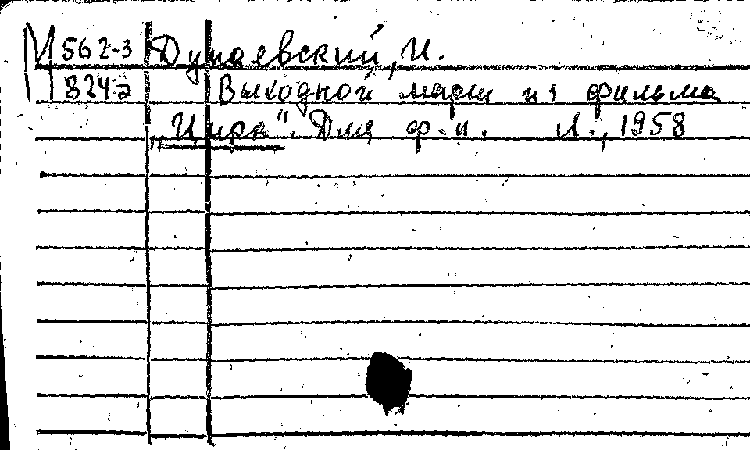 М562-3 Дунаевский, И.
В24а Выходной марш из фильма
„Цирк“. Для ф.-п. Л., 1958